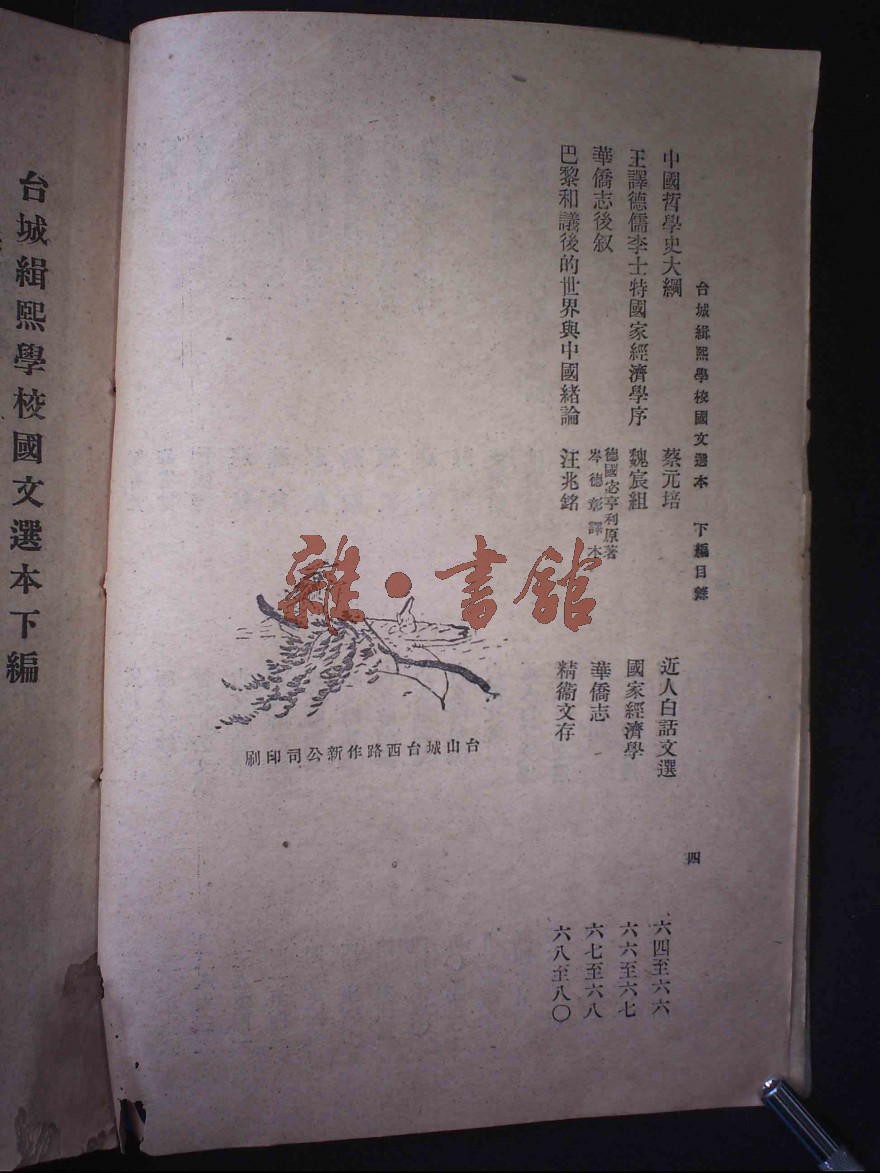 台城緝熙學校國文選本　下編目錄　四
中國哲學史大綱　蔡元培　近人白話文選　六四至六六
王譯德儒李士特國家經濟學序　魏宸組　國家經濟學　六六至六七
華僑志後叙　德國宓亨利原著　岑德彰譯本　華僑志　六七至六八
巴黎和議後的世界與中國緒論　汪兆銘　精衞文存　六八至八〇
台山城台西路作新公司印刷
雜·書館
台城緝熙學校國文選本下編